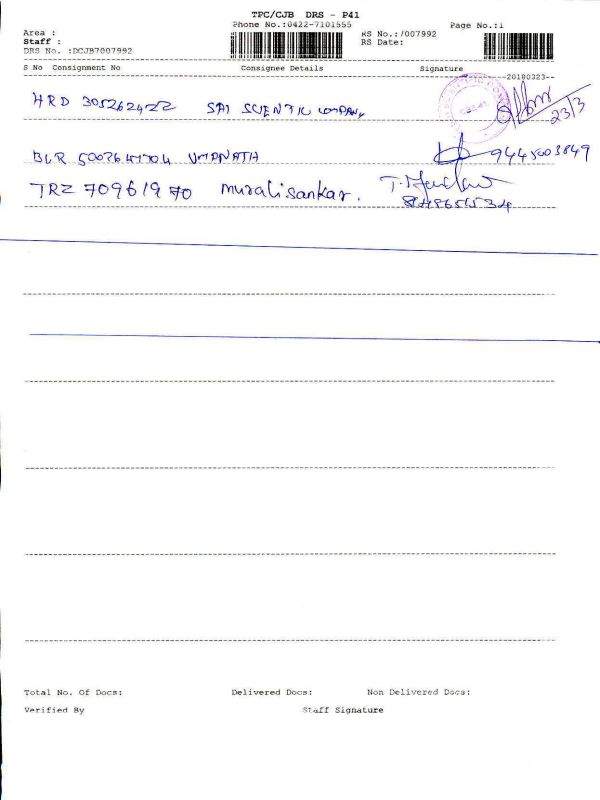 TPC/CJB DRS - P41
Phone No.:0422-7101555
Page No.:1
Area :
RS No.:/007992
Staff :
RS Date:
DRS No. :DCJB7007992
S No Consignment No Consignee Details Signature
20180323--
HRD 305262422 SAI SCIENTIFIC COMPANY
23/3
BLR 5002641704 UMANATH 9445003849
TRZ 709619 70 muralisankar.
Total No. Of Docs: Delivered Docs: Non Delivered Docs:
Verified By Staff Signature